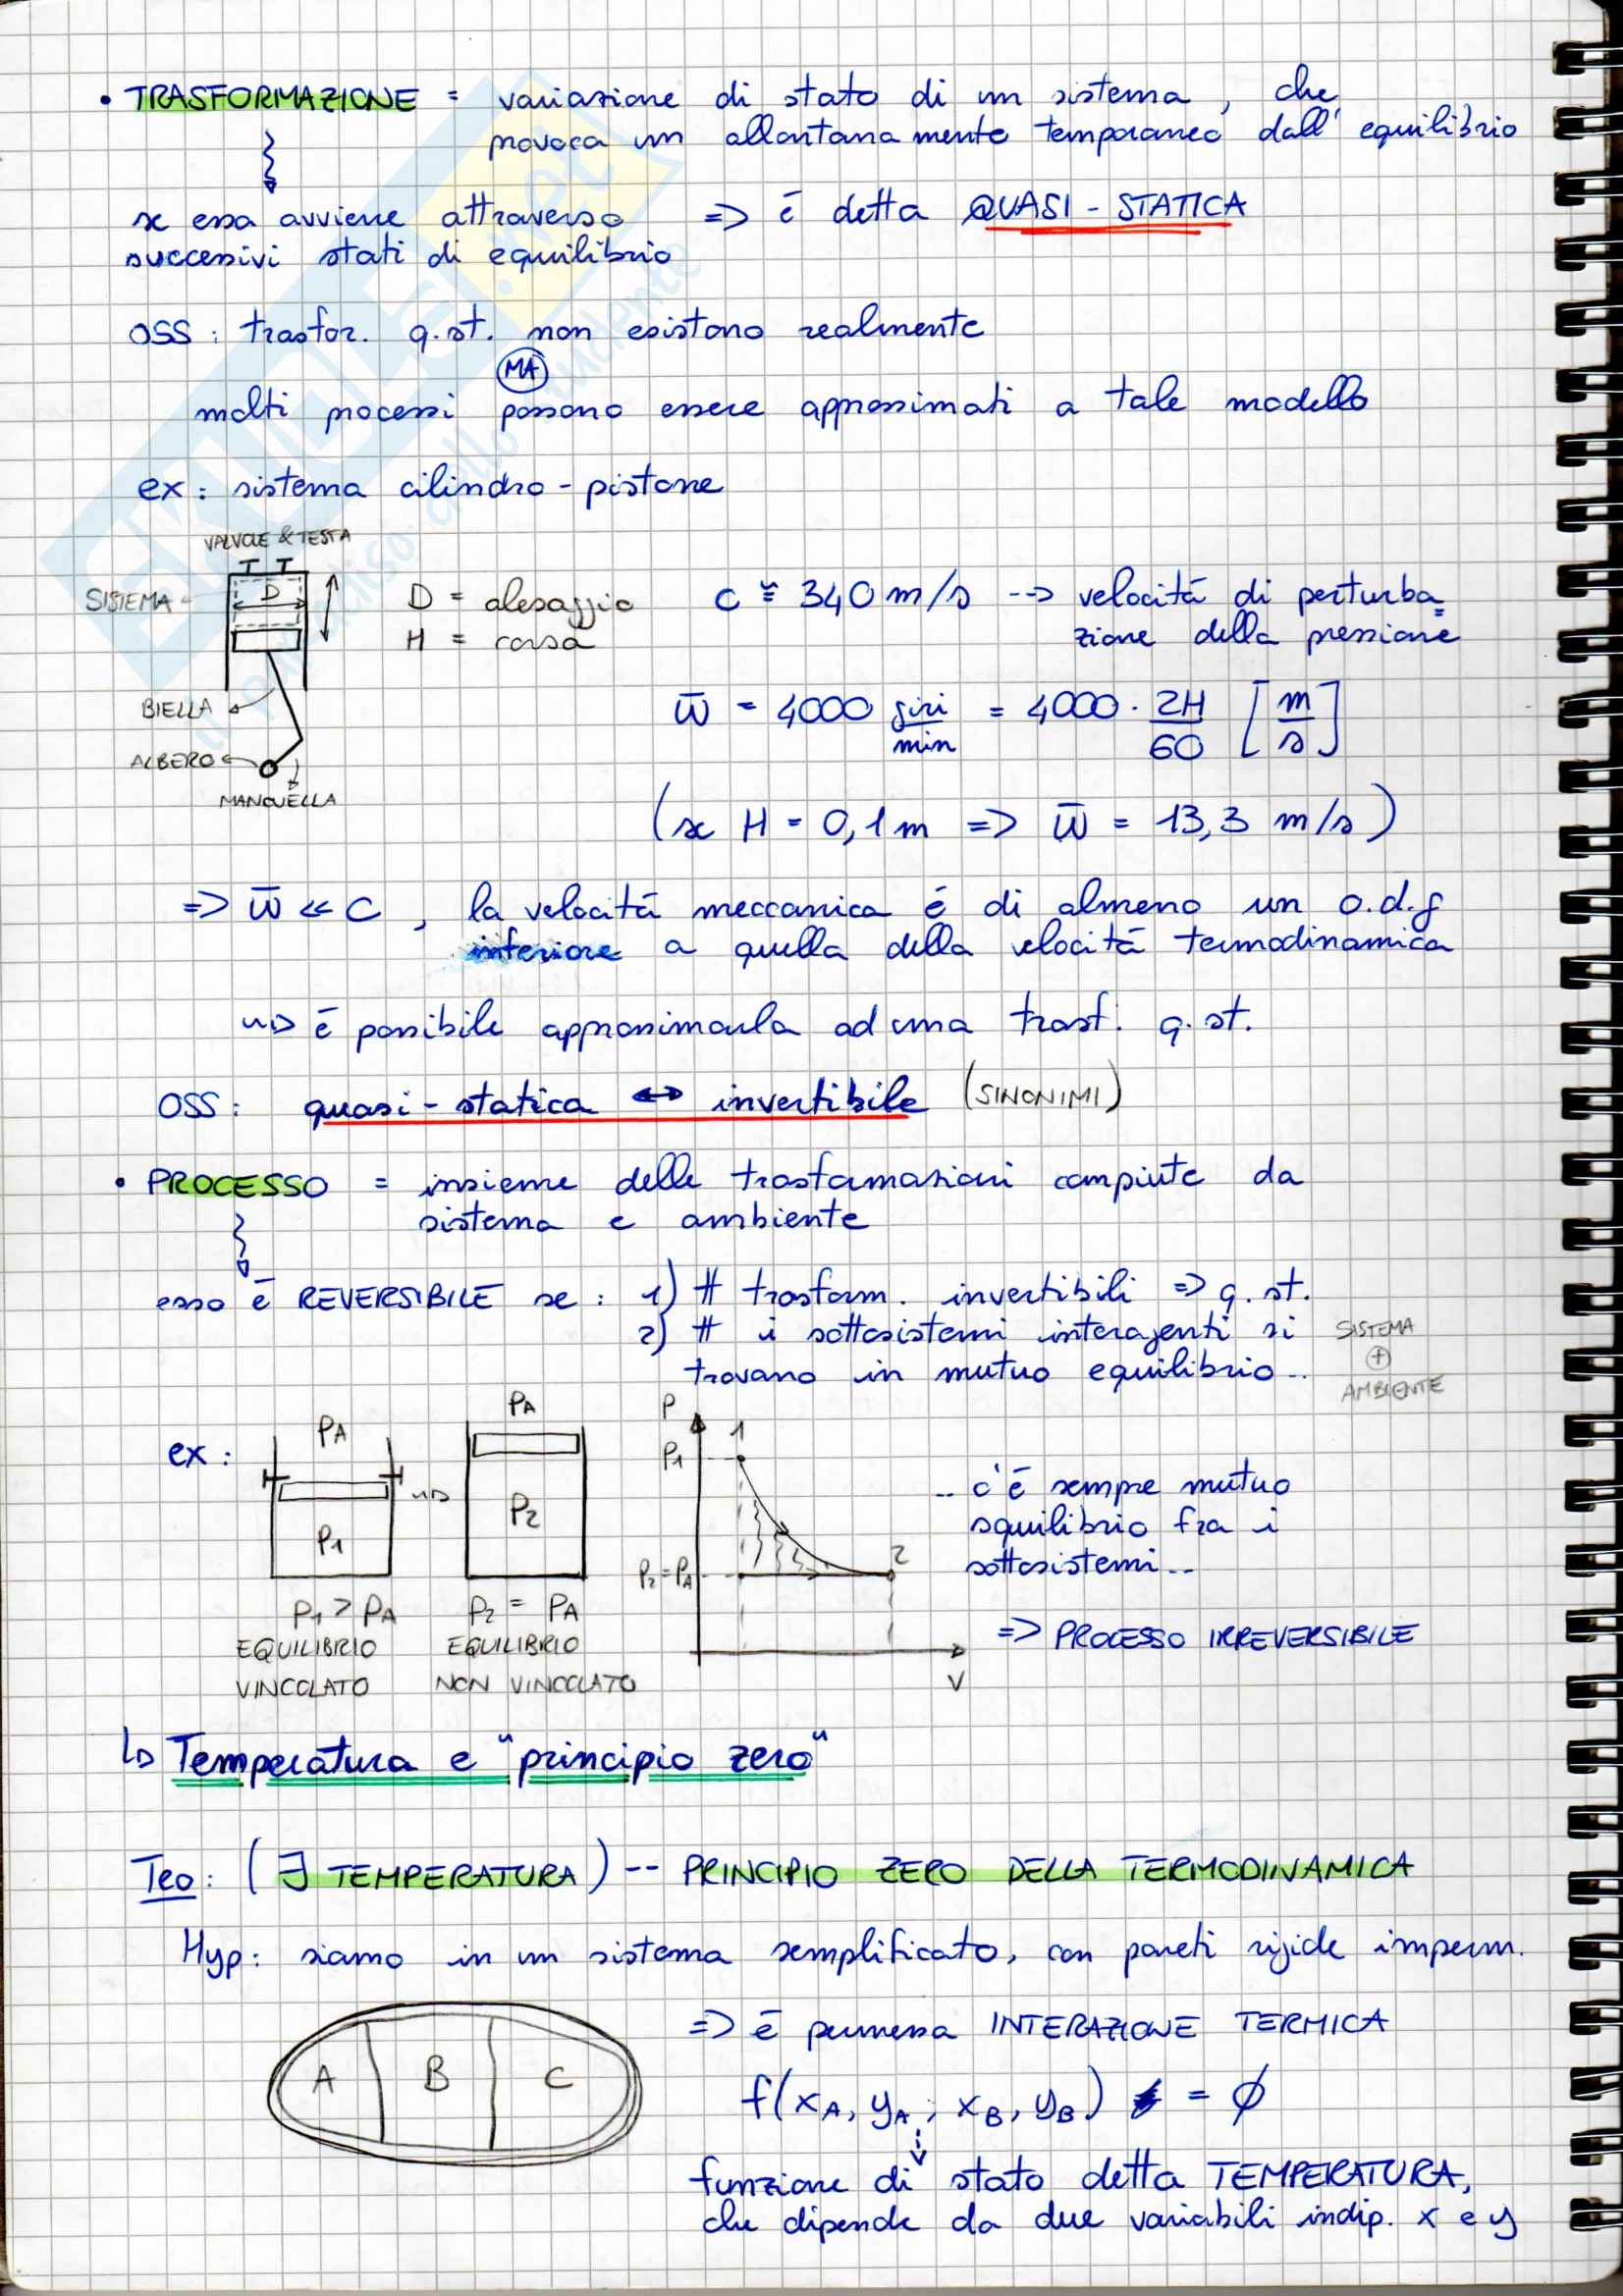 • TRASFORMAZIONE = variazione di stato di un sistema, che
provoca un allontanamento temporaneo dall'equilibrio
se essa avviene attraverso => è detta QUASI-STATICA
successivi stati di equilibrio
OSS: trasfor. q.st. non esistono realmente
MA
molti processi possono essere approssimati a tale modello
ex: sistema cilindro-pistone
VALVOLE & TESTA
SISTEMA
D
D = alesaggio
H = corsa
c ≅ 340 m/s --> velocità di perturba=
zione della pressione
BIELLA
ALBERO
MANOVELLA
w̄ = 4000 giri/min = 4000 · 2H/60 [m/s]
(se H = 0,1m => w̄ = 13,3 m/s)
=> w̄ << c, la velocità meccanica è di almeno un o.d.g
inferiore a quella della velocità termodinamica
è possibile approssimarla ad una trasf. q.st.
OSS: quasi-statica <-> invertibile (SINONIMI)
• PROCESSO = insieme delle trasformazioni compiute da
sistema e ambiente
esso è REVERSIBILE se: 1) # trasform. invertibili => q.st.
2) # i sottosistemi interagenti si
trovano in mutuo equilibrio..
SISTEMA
+
AMBIENTE
ex:
PA
P1
P1 > PA
EQUILIBRIO
VINCOLATO
PA
P2
P2 = PA
EQUILIBRIO
NON VINCOLATO
P
P1
1
P2=PA
2
V
.. c'è sempre mutuo
squilibrio fra i
sottosistemi..
=> PROCESSO IRREVERSIBILE
Temperatura e "principio zero"
Teo: (∃ TEMPERATURA) -- PRINCIPIO ZERO DELLA TERMODINAMICA
Hyp: siamo in un sistema semplificato, con pareti rigide imperm.
A B C
=> è permessa INTERAZIONE TERMICA
f(xA, yA; xB, yB) = ∅
funzione di stato detta TEMPERATURA,
che dipende da due variabili indip. x e y